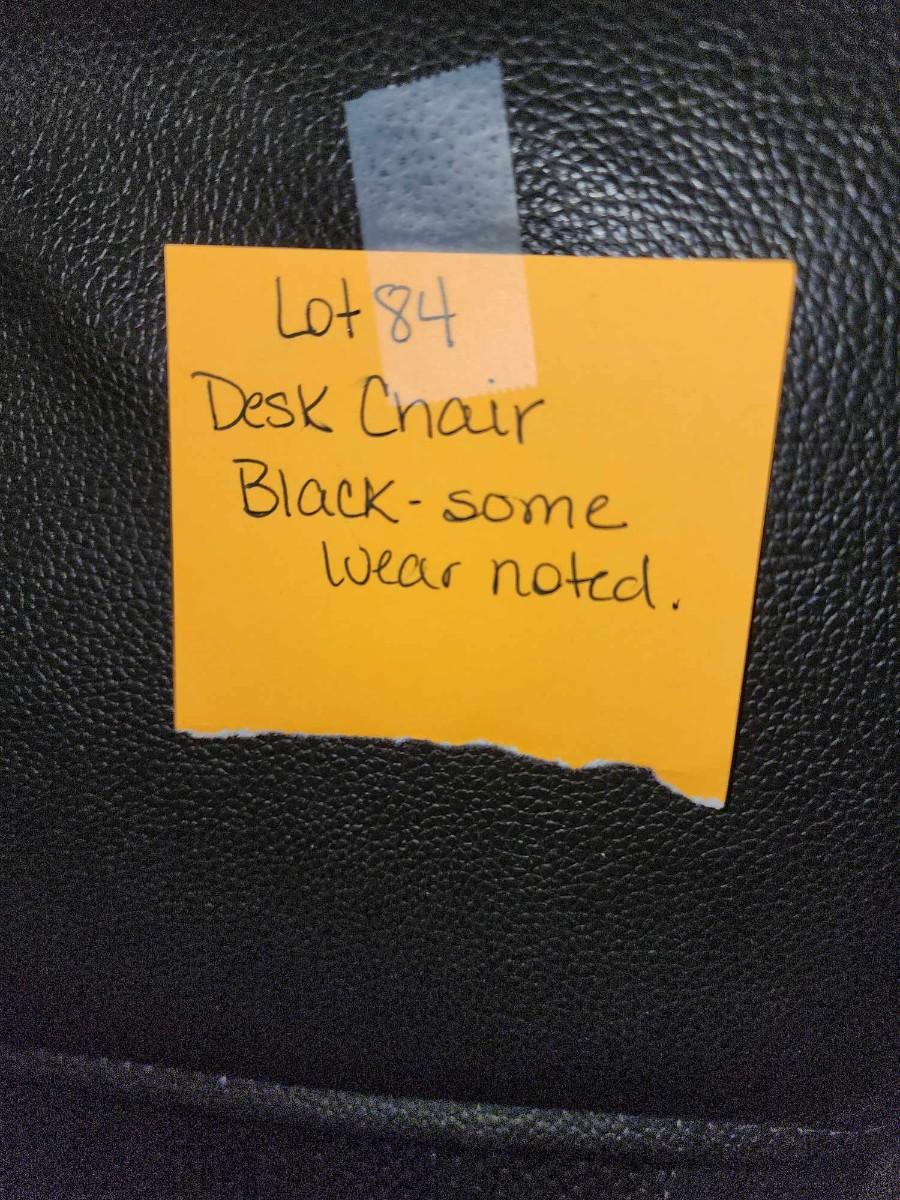 Lot 84
Desk Chair
Black - some
wear noted.